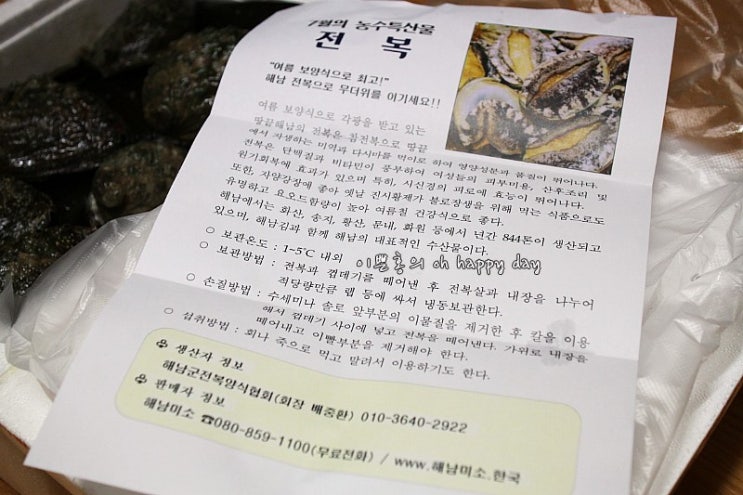 7월의 농수특산물
전 복
"여름 보양식으로 최고!"
해남 전복으로 무더위를 이기세요!!
여름 보양식으로 각광을 받고 있는
땅끝해남의 전복은 참전복으로 땅끝
에서 자생하는 미역과 다시마를 먹이로 하여 영양성분과 품질이 뛰어나다.
전복은 단백질과 비타민이 풍부하여 여성들의 피부미용, 산후조리 및
원기회복에 효과가 있으며 특히, 시신경의 피로에 효능이 뛰어나다.
또한, 자양강장에 좋아 옛날 진시황제가 불로장생을 위해 먹는 식품으로도
유명하고 요오드함량이 높아 여름철 건강식으로 좋다.
해남에서는 화산, 송지, 황산, 문내, 화원 등에서 년간 844톤이 생산되고
있으며, 해남김과 함께 해남의 대표적인 수산물이다.
○ 보관온도 : 1~5℃ 내외
이쁜홍의 oh happy day
○ 보관방법 : 전복과 껍데기를 떼어낸 후 전복살과 내장을 나누어
적당량만큼 랩 등에 싸서 냉동보관한다.
○ 손질방법 : 수세미나 솔로 앞부분의 이물질을 제거한 후 칼을 이용
해서 껍데기 사이에 넣고 전복을 떼어낸다. 가위로 내장을
떼어내고 이빨부분을 제거해야 한다.
○ 섭취방법 : 회나 죽으로 먹고 말려서 이용하기도 한다.
생산자 정보
해남군전복양식협회(회장 배중환) 010-3640-2922
판매자 정보
해남미소 ☎080-859-1100(무료전화) / www.해남미소.한국